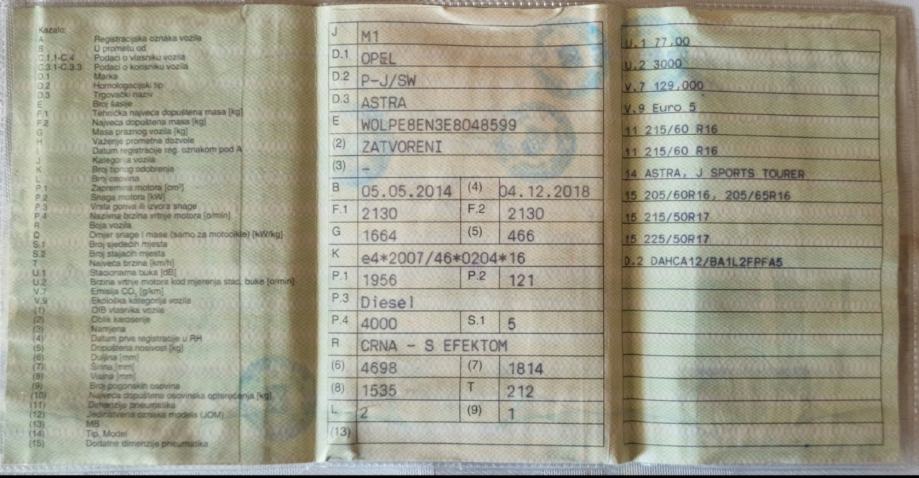 Kazalo:
A Registracijska oznaka vozila
B U prometu od
C.1.1-C.4 Podaci o vlasniku vozila
C.3.1-C.3.3 Podaci o korisniku vozila
D.1 Marka
D.2 Homologacijski tip
D.3 Trgovački naziv
E Broj šasije
F.1 Tehnička najveća dopuštena masa [kg]
F.2 Najveća dopuštena masa [kg]
G Masa praznog vozila [kg]
H Važenje prometne dozvole
I Datum registracije reg. oznakom pod A
J Kategorija vozila
K Broj tipnog odobrenja
L Broj osovina
P.1 Zapremina motora [cm³]
P.2 Snaga motora [kW]
P.3 Vrsta goriva ili izvora snage
P.4 Nazivna brzina vrtnje motora [o/min]
R Boja vozila
Q Omjer snage i mase (samo za motocikle) [kW/kg]
S.1 Broj sjedećih mjesta
S.2 Broj stajaćih mjesta
T Najveća brzina [km/h]
U.1 Stacionarna buka [dB]
U.2 Brzina vrtnje motora kod mjerenja stac. buke [o/min]
V.7 Emisija CO₂ [g/km]
V.9 Ekološka kategorija vozila
(1) OIB vlasnika vozila
(2) Oblik karoserije
(3) Namjena
(4) Datum prve registracije u RH
(5) Dopuštena nosivost [kg]
(6) Duljina [mm]
(7) Širina [mm]
(8) Visina [mm]
(9) Broj pogonskih osovina
(10) Najveća dopuštena osovinska opterećenja [kg]
(11) Dimenzije pneumatika
(12) Jedinstvena oznaka modela (JOM)
(13) MB
(14) Tip, Model
(15) Dodatne dimenzije pneumatika
J M1
D.1 OPEL
D.2 P-J/SW
D.3 ASTRA
E W0LPE8EN3E8048599
(2) ZATVORENI
(3) -
B 05.05.2014 (4) 04.12.2018
F.1 2130 F.2 2130
G 1664 (5) 466
K e4*2007/46*0204*16
P.1 1956 P.2 121
P.3 Diesel
P.4 4000 S.1 5
R CRNA - S EFEKTOM
(6) 4698 (7) 1814
(8) 1535 T 212
L 2 (9) 1
(13)
U.1 77,00
U.2 3000
V.7 129,000
V.9 Euro 5
11 215/60 R16
11 215/60 R16
14 ASTRA, J SPORTS TOURER
15 205/60R16, 205/65R16
15 215/50R17
15 225/50R17
D.2 DAHCA12/BA1L2FPFA5